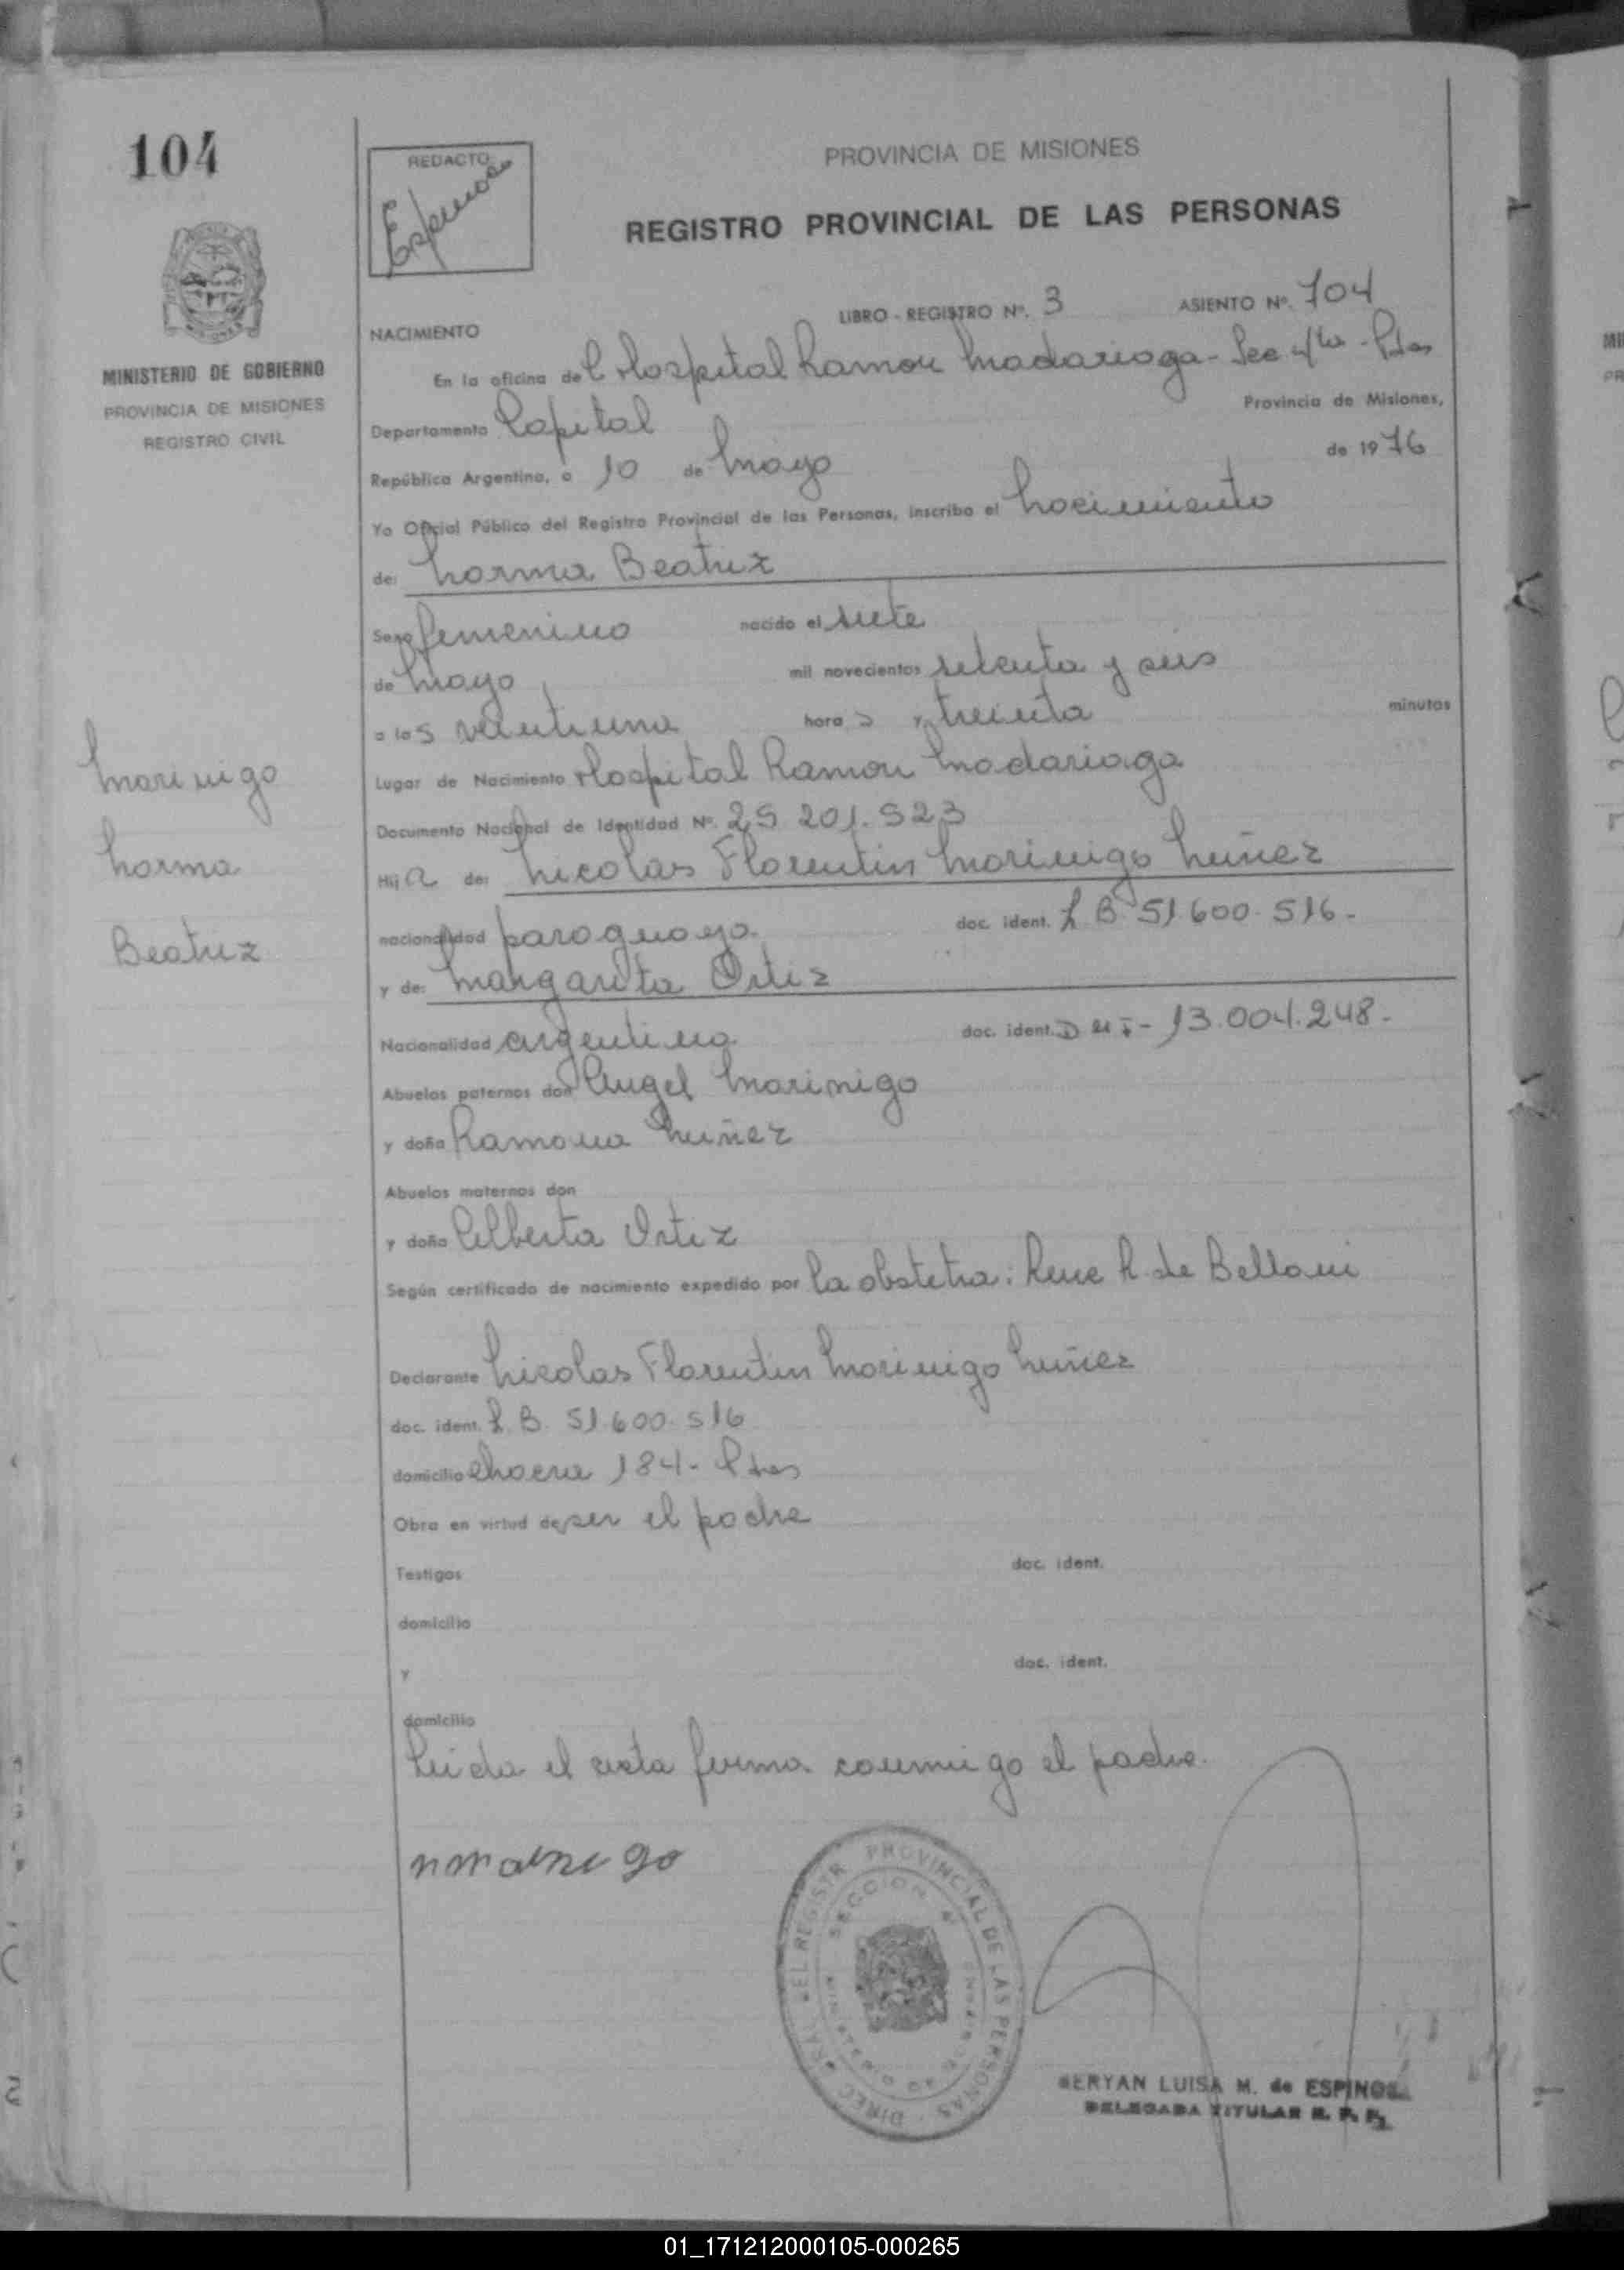 104
REDACTO
Espinosa
PROVINCIA DE MISIONES
REGISTRO PROVINCIAL DE LAS PERSONAS
MINISTERIO DE GOBIERNO
PROVINCIA DE MISIONES
REGISTRO CIVIL
LIBRO - REGISTRO Nº. 3 ASIENTO Nº. 104
NACIMIENTO
En la oficina del Hospital Ramon Madariaga - Sec 4ta - Pdas
Departamento Capital Provincia de Misiones,
República Argentina, a 10 de Mayo de 1976
Yo Oficial Público del Registro Provincial de las Personas, inscribo el Nacimiento
de: Norma Beatriz
Sexo femenino nacido el siete
de Mayo mil novecientos setenta y seis
a las veintiuna horas y treinta minutos
Lugar de Nacimiento Hospital Ramon Madariaga
Documento Nacional de Identidad Nº. 25.201.523
Hija de: Nicolas Florentin Morinigo Nuñez
nacionalidad paraguaya doc. ident. L B 51.600.516-
y de: Margarita Ortiz
Nacionalidad argentina doc. ident. D N I - 13.004.248-
Abuelos paternos don Angel Morinigo
y doña Ramona Nuñez
Abuelos maternos don
y doña Alberta Ortiz
Según certificado de nacimiento expedido por la obstetra: Rene R. de Belloni
Declarante Nicolas Florentin Morinigo Nuñez
doc. ident. L B. 51.600.516
domicilio Chacra 184- Pdas
Obra en virtud de ser el padre
Testigos doc. ident.
domicilio
y doc. ident.
domicilio
Leida el acta firma conmigo el padre.
Morinigo
Norma
Beatriz
SECCION
PROVINCIAL DE LAS PERSONAS
SERYAN LUISA M. de ESPINOSA
DELEGADA TITULAR R. P. P.
01_171212000105-000265